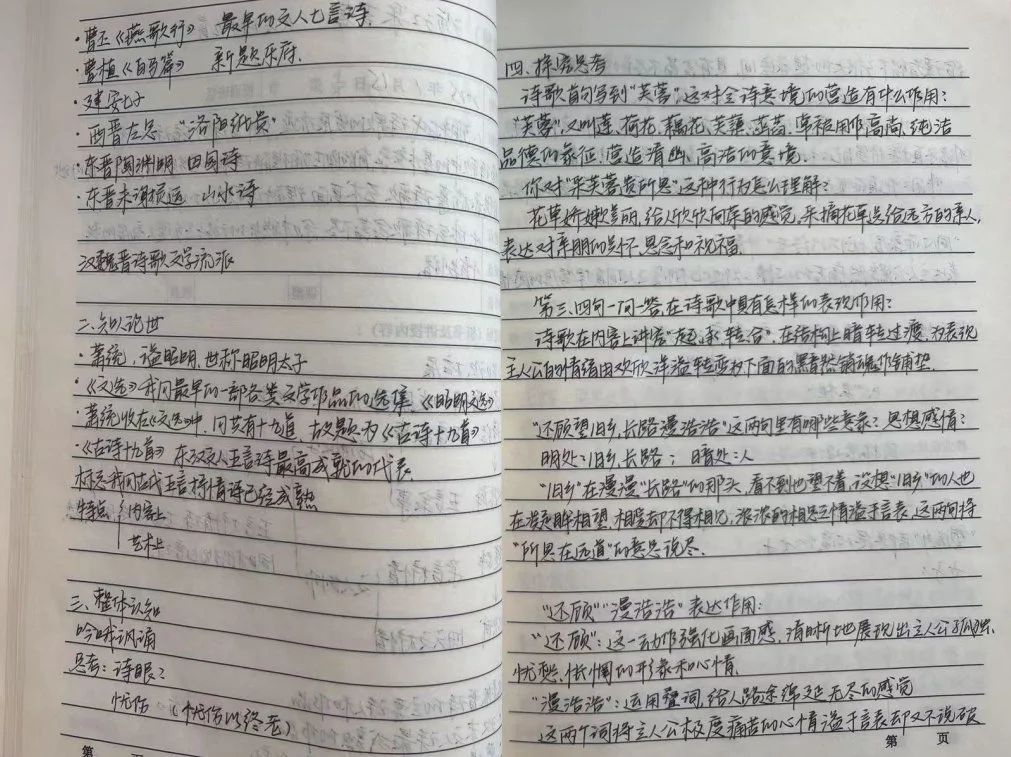 ·曹丕《燕歌行》 最早的文人七言诗.
·曹植《白马篇》 新题乐府.
·建安七子
·西晋左思 "洛阳纸贵"
·东晋陶渊明 田园诗
·东晋末谢灵运 山水诗
汉魏晋诗歌文学流派
二、知人论世
·萧统,谥昭明,世称昭明太子
·《文选》我国最早的一部各类文学作品的选集.《昭明文选》
·萧统收在《文选》中,因共有十九首,故题为《古诗十九首》
·《古诗十九首》东汉文人五言诗最高成就的代表.
标志我国古代五言抒情诗已经成熟
特点 内容上
艺术上
三、整体认知
吟哦讽诵
思考:诗眼?
忧伤 (忧伤以终老)
第
四、探究思考
诗歌首句写到"芙蓉",这对全诗意境的营造有什么作用?
"芙蓉",又叫莲、荷花、藕花、芙蕖、菡萏.常被用作高尚、纯洁
品德的象征.营造清幽、高洁的意境.
你对"采芙蓉赠所思"这种行为怎么理解?
花草娇嫩美丽,给人欣欣向荣的感觉,采摘花草送给远方的亲人,
表达对亲朋的关怀、思念和祝福.
第三、四句一问一答,在诗歌中具有怎样的表现作用?
诗歌在内容上讲究"起、承、转、合",在结构上暗转过渡,为表现
主人公的情绪由欢欣洋溢转变为下面的黯然销魂作铺垫.
"还顾望旧乡,长路漫浩浩"这两句里有哪些意象?思想感情?
明处:旧乡、长路; 暗处:人
"旧乡"在漫漫"长路"的那头,看不到也望不着.设想"旧乡"的人也
在举眸相望.相望却不得相见,浓浓的相思之情溢于言表,这两句将
"所思在远道"的意思说尽.
"还顾""漫浩浩"表达作用:
"还顾":这一动作强化画面感,清晰地展现出主人公孤独、
忧愁、怅惘的形象和心情.
"漫浩浩":运用叠词,给人路途绵延无尽的感觉
这两个词将主人公极度痛苦的心情溢于言表却又不说破
第 页